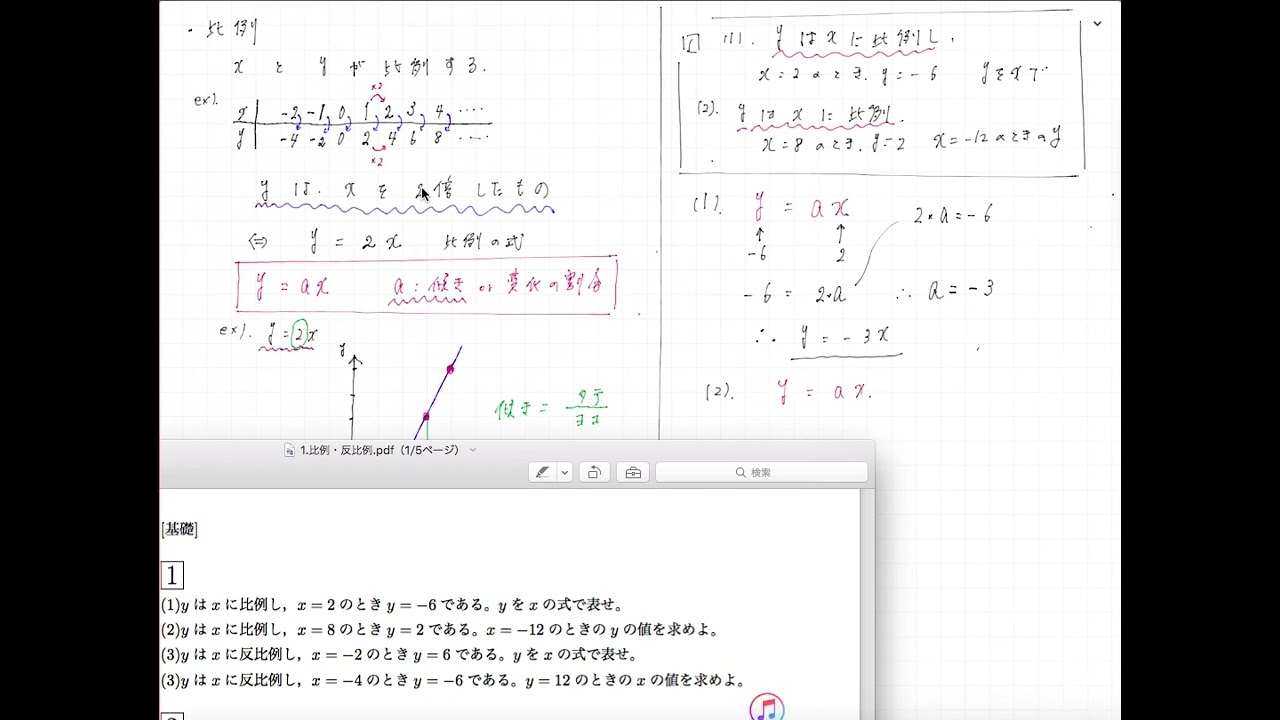 ・比例
x と y が 比例する.
×2
ex). x | -2, -1, 0, 1, 2, 3, 4, ....
y | -4 -2 0 2 4 6 8 ....
×2
y は. x を 2倍 したもの
⇔ y = 2x 比例の式
y = ax a : 傾き or 変化の割合
ex). y = 2x
y
傾き = タテ/ヨコ
1 (1). y は x に 比例し,
x = 2 のとき. y = -6 y を x で
(2). y は x に 比例.
x = 8 のとき. y = 2 x = -12 のときの y
(1). y = ax
↑ ↑
-6 2
2・a = -6
-6 = 2・a ∴ a = -3
∴ y = -3x
(2). y = ax.
1.比例・反比例.pdf（1/5ページ）
検索
[基礎]
1
(1)y は x に比例し，x = 2 のとき y = −6 である。y を x の式で表せ。
(2)y は x に比例し，x = 8 のとき y = 2 である。x = −12 のときの y の値を求めよ。
(3)y は x に反比例し，x = −2 のとき y = 6 である。y を x の式で表せ。
(3)y は x に反比例し，x = −4 のとき y = −6 である。y = 12 のときの x の値を求めよ。